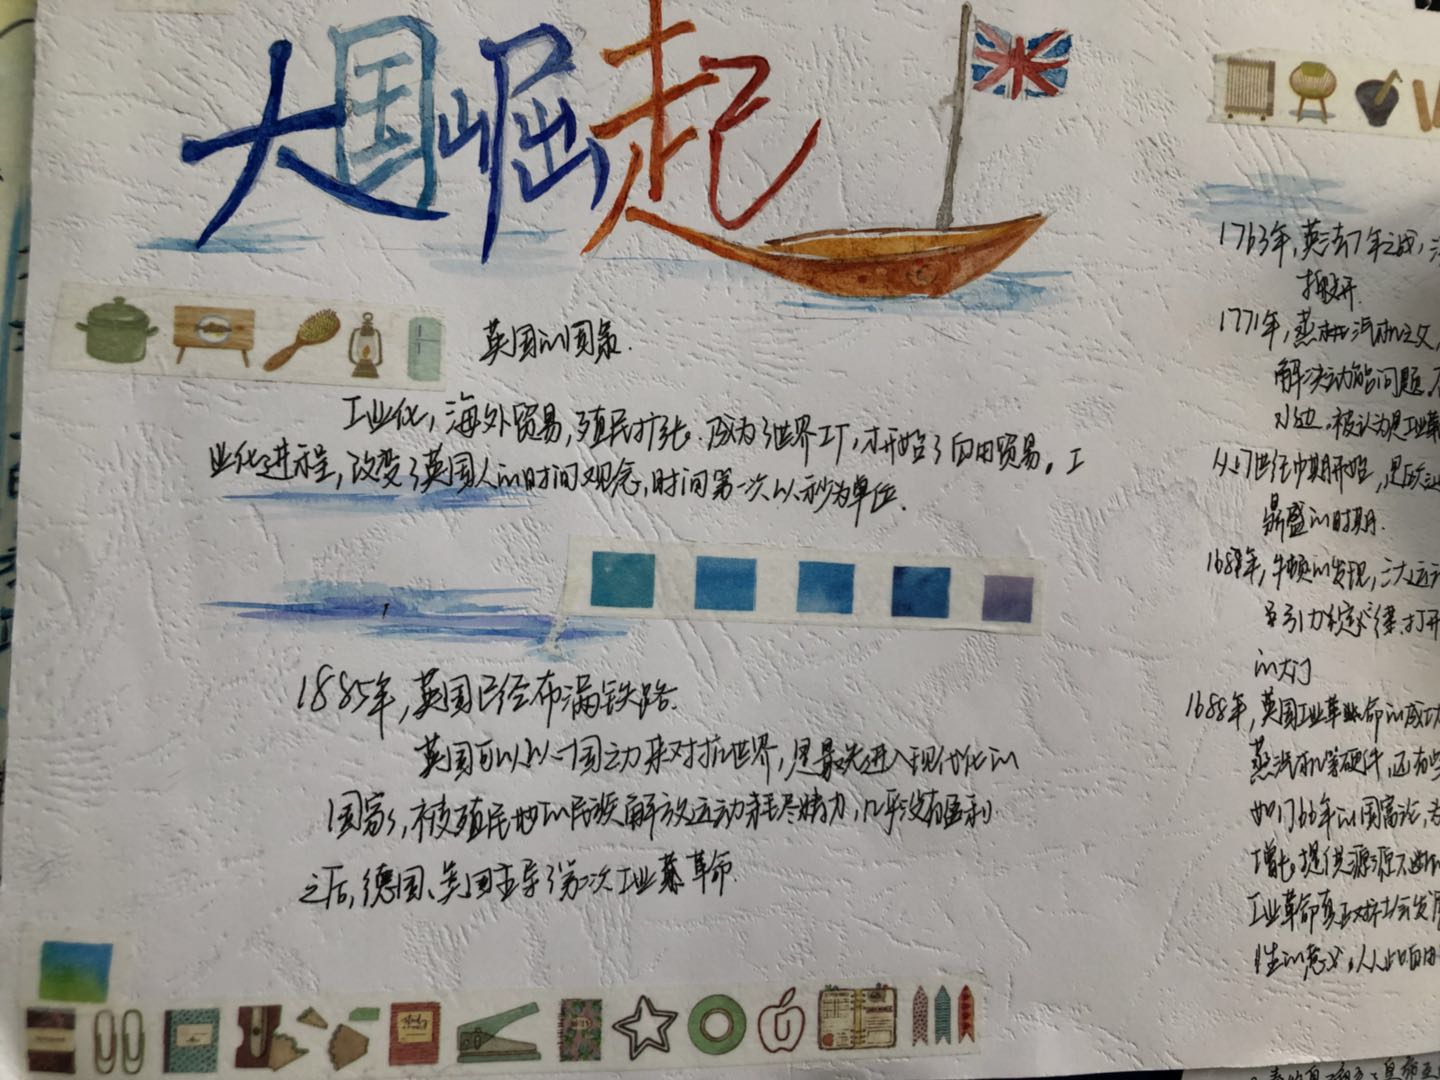 大国崛起
英国的图景.
工业化，海外贸易，殖民扩张.成为了世界工厂，才开始了自由贸易。工
业化进程，改变了英国人的时间观念，时间第一次以秒为单位.
1885年，英国已经布满铁路.
英国可以以一国之力来对抗世界，是最先进入现代化的
国家，被殖民地的民族解放运动耗尽精力，几乎没有盈利.
之后，德国、美国主导了第二次工业革命.
1763年，英法7年之战，
1771年，蒸汽机之父，
解决动能问题，
被认为是工业革
从17世纪中期开始，
鼎盛的时期.
1688年，牛顿的发现，三大运
引力定律，打开
的大门
1688年，英国工业革命的成功
蒸汽机等硬件，还有
如1766年的国富论，
增长提供源源不断的
工业革命真正对社会发展
性的意义，人人